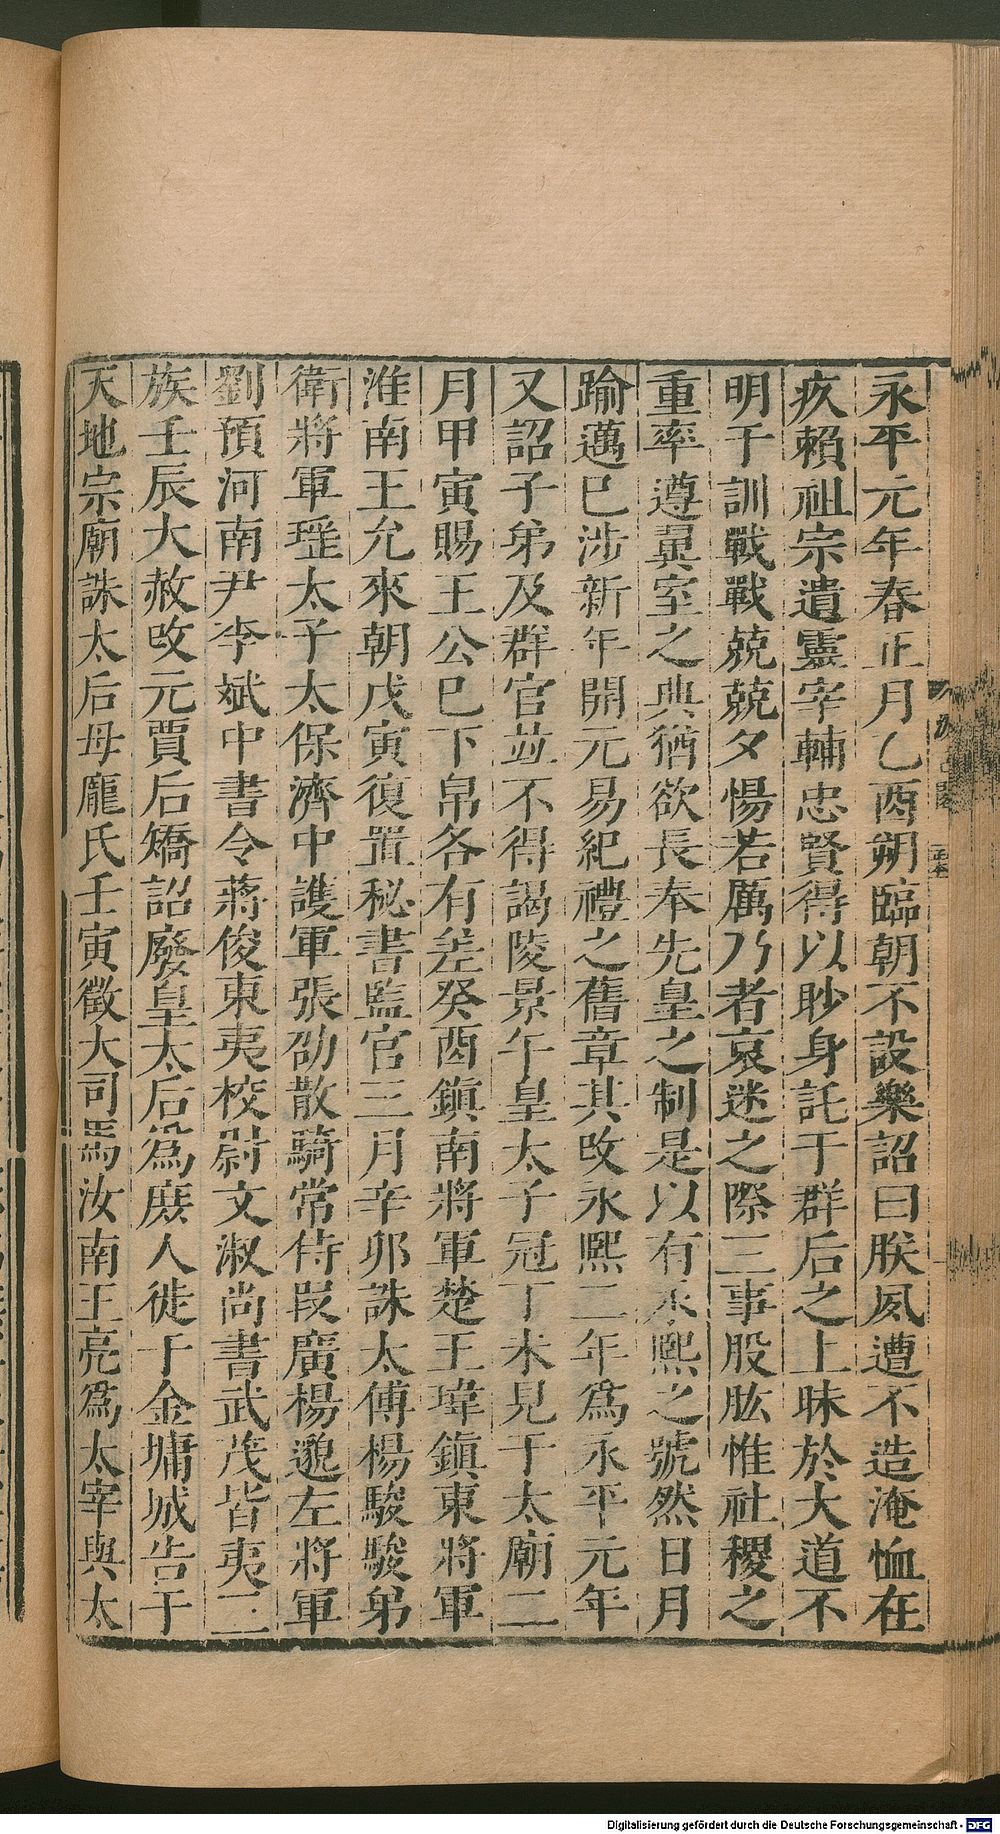 永平元年春正月乙酉朔臨朝不設樂詔曰朕夙遭不造淹恤在
疚賴祖宗遺靈宰輔忠賢得以眇身託于群后之上昧於大道不
明于訓戰戰兢兢夕惕若厲乃者哀迷之際三事股肱惟社稷之
重率遵翼室之典猶欲長奉先皇之制是以有永熙之號然日月
踰邁已涉新年開元易紀禮之舊章其改永熙二年為永平元年
又詔子弟及群官並不得謁陵景午皇太子冠丁未見于太廟二
月甲寅賜王公已下帛各有差癸酉鎮南將軍楚王瑋鎮東將軍
淮南王允來朝戊寅復置秘書監官三月辛卯誅太傅楊駿駿弟
衛將軍珧太子太保濟中護軍張劭散騎常侍段廣楊邈左將軍
劉預河南尹李斌中書令蔣俊東夷校尉文淑尚書武茂皆夷三
族壬辰大赦改元賈后矯詔廢皇太后為庶人徙于金墉城告于
天地宗廟誅太后母龐氏壬寅徵大司馬汝南王亮為太宰與太
Digitalisierung gefördert durch die Deutsche Forschungsgemeinschaft - DFG